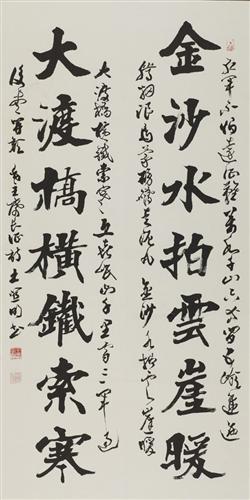 紅軍不怕遠征難萬水千山只等閑五嶺逶迤
金沙水拍雲崖暖
騰細浪烏蒙磅礴走泥丸金沙水拍雲崖暖
大渡橋橫鐵索寒更喜岷山千里雪三軍過
大渡橋橫鐵索寒
後盡開顏毛主席長征詩